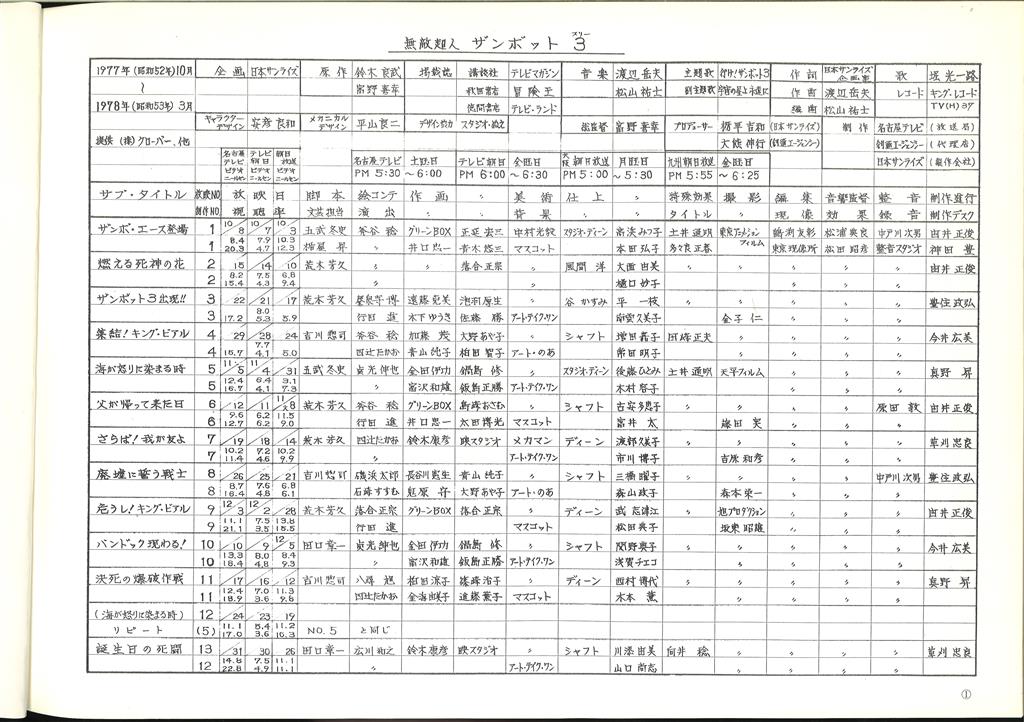 無敵超人 ザンボット 3
スリー
1977年(昭和52年)10月 企画 日本サンライズ 原作 鈴木良武 掲載誌 講談社 テレビマガジン 音楽 渡辺岳夫 主題歌 行け!ザンボット3 作詞 日本サンライズ企画室 歌 堀光一路
〜 富野喜幸 秋田書店 冒険王 松山祐士 副主題歌 宇宙の星よ永遠に 作曲 渡辺岳夫 レコード キング・レコード
1978年(昭和53年)3月 徳間書店 テレビ・ランド 編曲 松山祐士 TV(H)37
キャラクターデザイン 安彦良和 メカニカルデザイン 平山良二 デザイン協力 スタジオ・ぬえ 総監督 富野喜幸 プロデューサー 栃平吉和 (日本サンライズ) 制作 名古屋テレビ (放送局)
提供 (株)クローバー、他 大熊伸行 (創通エージェンシー) 創通エージェンシー (代理店)
名古屋テレビ ビデオニールセン テレビ朝日 ビデオニールセン 朝日放送 ビデオニールセン 名古屋テレビ 土曜日 テレビ朝日 金曜日 大阪 朝日放送 月曜日 九州朝日放送 金曜日 日本サンライズ (製作会社)
PM 5:30 〜6:00 PM 6:00 〜6:30 PM 5:00 〜5:30 PM 5:55 〜6:25
サブ・タイトル 放映NO. 放映日 脚本 絵コンテ 作画 〃 美術 仕上 〃 特殊効果 撮影 編集 音響監督 整音 制作進行
制作NO. 視聴率 文芸担当 演出 〃 背景 〃 タイトル 〃 現像 効果 録音 制作デスク
ザンボ・エース登場 1 10/8 10/7 10/3 五武冬史 斧谷稔 グリーンBOX 正延宏三 中村光毅 スタジオ・ディーン 高沢正美 土井通明 東京アニメーションフィルム 鶴渕友彰 松浦典良 中戸川次男 由井正俊
1 8.4 20.3 7.9 4.7 10.3 12.3 楯屋昇 〃 井口忠一 青木悠三 マスコット 本田弘子 多々良正春 東京現像所 松田昭彦 整音スタジオ 神田豊
燃える死神の花 2 15 14 10 荒木芳久 〃 〃 落合正宗 〃 風間洋 大面由美 〃 〃 〃 〃 〃 由井正俊
2 8.2 15.4 7.5 4.3 6.8 9.4 〃 樋口妙子 〃
ザンボット3出現!! 3 22 21 17 荒木芳久 遠藤克美 池羽厚生 〃 谷かすみ 平一枝 〃 〃 〃 〃 〃 豊住政弘
3 17.2 8.0 5.3 5.9 行田進 木下ゆうき 佐藤勝 アート・テイク・ワン 南雲久美子 金子仁 〃
集結!キング・ビアル 4 29 28 24 吉川惣司 斧谷稔 加藤茂 大野あや子 〃 シャフト 増田喜子 田崎正夫 〃 〃 〃 〃 今井広美
4 15.7 7.7 4.1 5.0 四辻たかお 青山純子 柏田智子 アート・のあ 常田明子 〃
海が怒りに染まる時 5 11/5 11/4 31 五武冬史 貞光伸也 金田伊功 鍋島修 〃 スタジオ・ディーン 後藤ひとみ 土井通明 天平フィルム 〃 〃 〃 真野昇
5 12.4 16.7 6.4 4.1 3.1 7.3 〃 富沢和雄 飯島正勝 アート・テイク・ワン 木村啓子 〃
父が帰って来た日 6 12 11 11/8 荒木芳久 斧谷稔 グリーンBOX 島崎おさむ 〃 シャフト 古安多恵子 〃 〃 〃 〃 原田敦 由井正俊
6 9.6 12.7 6.2 6.2 11.5 9.0 行田進 井口忠一 太田博光 マスコット 富井太 塚田実 〃
さらば!我が友よ 7 19 18 14 荒木芳久 四辻たかお 鈴木康彦 映スタジオ メカマン ディーン 渡部久美子 〃 〃 〃 〃 〃 草刈忠良
7 10.2 11.4 7.2 4.6 10.2 9.9 〃 アート・テイク・ワン 市川博子 吉原和彦 〃
廃墟に誓う戦士 8 26 25 21 吉川惣司 磯浜太郎 長谷川憲生 青山純子 〃 シャフト 三橋曜子 〃 〃 〃 〃 中戸川次男 豊住政弘
8 8.7 16.4 7.6 4.8 6.8 6.1 石崎すすむ 大野あや子 アート・のあ 森山政子 森本栄一 〃
危うし!キング・ビアル 9 12/3 12/2 28 荒木芳久 落合正宗 グリーンBOX 落合正宗 〃 ディーン 武志津江 〃 旭プロダクション 〃 〃 〃 由井正俊
9 11.1 21.1 7.5 3.5 13.8 15.5 行田進 マスコット 松田典子 坂東昭雄 〃
バンドック現わる! 10 10 9 12/5 田口章一 貞光紳也 金田伊功 鍋島修 〃 シャフト 関野典子 〃 〃 〃 〃 〃 今井広美
10 13.3 18.4 8.0 4.8 8.4 9.3 〃 富沢和雄 飯島正勝 アート・テイク・ワン 浅賀チエコ 〃
決死の爆破作戦 11 17 16 12 吉川惣司 八尋旭 柏田涼子 篠崎治子 〃 ディーン 西村博代 〃 〃 〃 〃 〃 真野昇
11 12.4 18.9 7.0 3.6 11.3 9.8 四辻たかお 金海由美子 遠藤葉子 マスコット 木本薫 〃
(海が怒りに染まる時) 12 24 23 19
リピート (5) 11.1 17.0 5.4 3.6 11.2 10.3 NO.5 と同じ
誕生日の死闘 13 31 30 26 田口章一 広川和之 鈴木康彦 映スタジオ 〃 シャフト 川添由美 向井稔 〃 〃 〃 〃 草刈忠良
12 14.8 22.8 7.5 4.9 11.1 11.1 〃 アート・テイク・ワン 山口尚志 〃
①